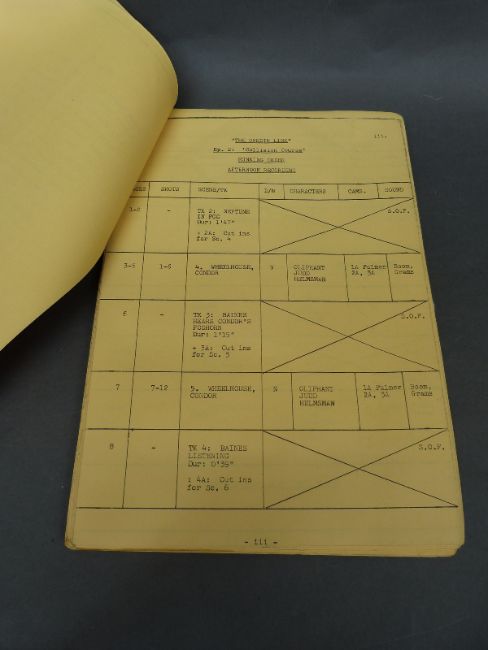 iii.
"THE ONEDIN LINE"
Ep. 2: 'Collision Course'
RUNNING ORDER
AFTERNOON RECORDING
PAGES SHOTS SCENE/TK D/N CHARACTERS CAMS. SOUND
1-2 - TK 2: NEPTUNE IN FOG
Dur: 1'47"
+ 2A: Cut ins for Sc. 4
S.O.F.
3-5 1-6 4. WHEELHOUSE, CONDOR
N
OLIPHANT
JUDD
HELMSMAN
1A Fulmer
2A, 3A
Boom,
Grams
6 - TK 3: BAINES HEARS CONDOR'S FOGHORN
Dur: 1'15"
+ 3A: Cut ins for Sc. 5
S.O.F.
7 7-12 5. WHEELHOUSE, CONDOR
N
OLIPHANT
JUDD
HELMSMAN
1A Fulmer
2A, 3A
Boom,
Grams
8 - TK 4: BAINES LISTENING
Dur: 0'39"
+ 4A: Cut ins for Sc. 6
S.O.F.
- iii -